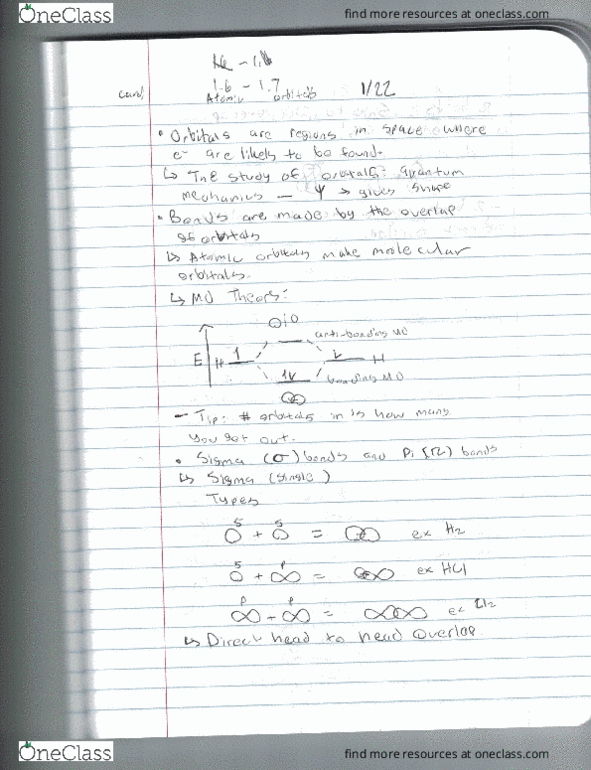 OneClass
find more resources at oneclass.com
1.6 - 1.7
1/22
Atomic orbitals
• Orbitals are regions in space where
e- are likely to be found.
↳ The study of orbitals: quantum
mechanics — ψ → gives shape
• Bonds are made by the overlap
of orbitals
↳ Atomic orbitals make molecular
orbitals.
↳ MO Theory:
anti-bonding MO
E H 1 H
1v bonding MO
- Tip: # orbitals in is how many
you get out.
• Sigma (σ) bonds and Pi (π) bonds
↳ Sigma (single)
Types
s s
+ = ex H2
s p
+ = ex HCl
p p
+ = ex
↳ Direct head to head overlap
OneClass
find more resources at oneclass.com